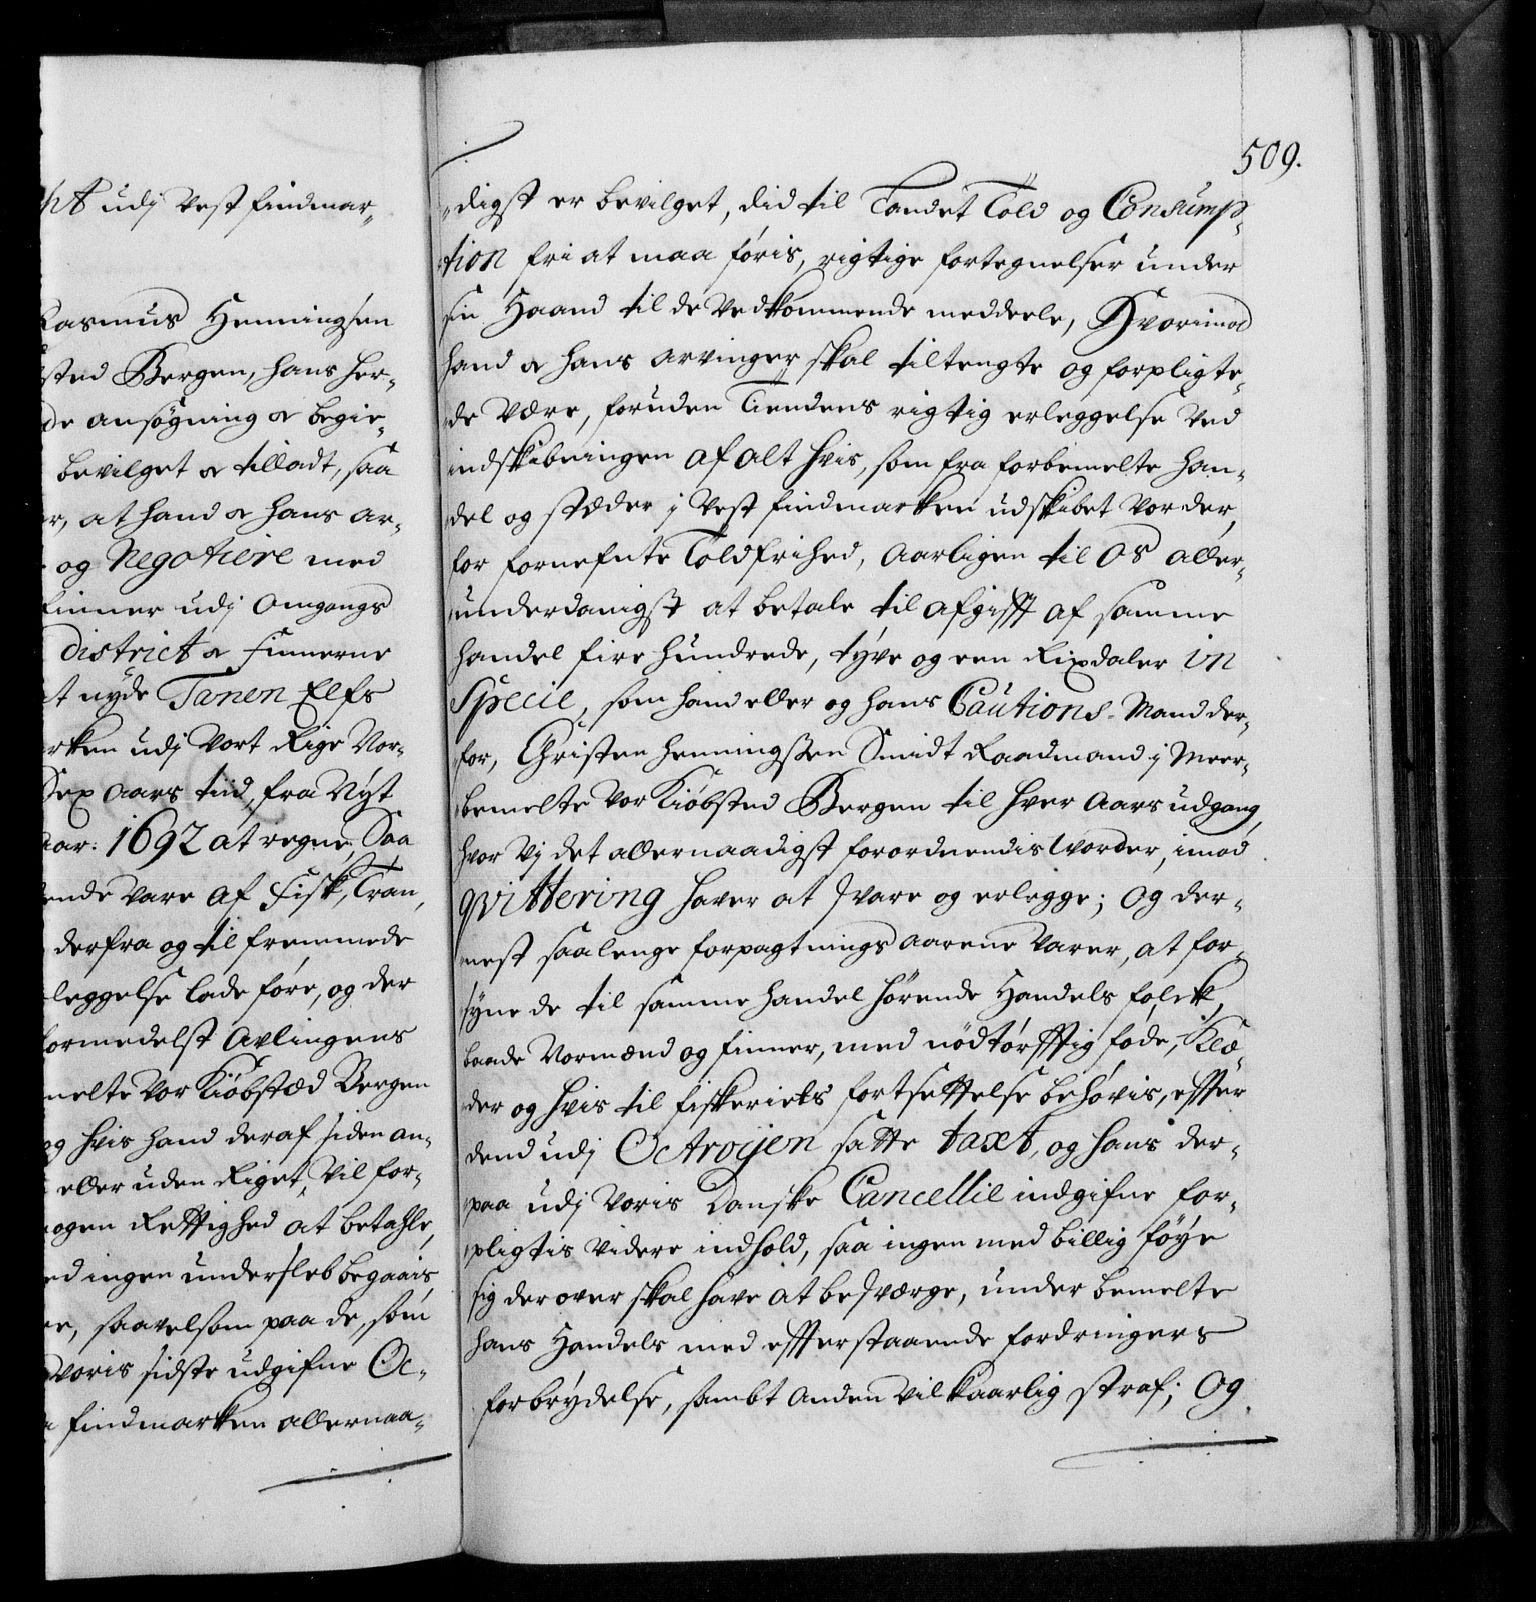 ht udj Vest findmar-
Rasmus Henningsen
sted Bergen, hans her-
de ansøgning & begie-
bevilget & tilladt, saa
r, at hand & hans ar-
og Negotiere med
finner udj Omgangs
District & Finnerne
t nyde Tanen Elfs
rken udj Vort Rige Nor-
Sex aars tiid, fra Nyt
aar: 1692 at regne, Saa
ende vare af Fisk, Tran,
derfra og til fremmede
leggelse lade føre, og der
formedelst Avlingens
melte Vor Kiøbstæd Bergen
og hvis hand deraf siden an-
eller uden Riget, Vil for-
ogen Rettighed at betahle,
ed ingen undersleb begaais
re, saavelsom paa de, som
Voris sidste udgifne Oc-
a findmarken allernaa-
509.
-digst er bevilget, did til Landet Told og Consump-
-tion fri at maa føris, rigtige fortegnelser under
sin Haand til de Vedkommende meddeele, Hvorimod
hand & hans arvinger skal tiltengte og forpligte-
-de være, foruden Tiendens rigtig erleggelse Ved
indskibningen af alt hvis, som fra forbemelte Han-
-del og stæder j Vest findmarken udskibet Vorder,
for fornefnte Toldfrihed, Aarligen til Os aller-
-underdanigst at betale til afgifft af samme
handel fire hundrede, tyve og een Rixdaler in
Specie, som hand eller og hans Cautions-Mand der-
-for, Christen Henningsen Smidt Raadmand j Meer-
-bemelte Vor Kiøbsted Bergen til hver Aars udgang,
hvor Vj det allernaadigst forordnendis Vorder, imod
qvittering haver at svare og erlegge; Og der-
-nest saalenge forpagtnings aarene Varer, at for-
-syne de til samme handel hørende Handels folck,
baade Normænd og finner, med nødtørfftig føde, Klæ-
-der og hvis til fiskeriets fortsettelse behøvis, effter
dend udj Octroyen satte taxt, og hans der-
-paa udj Voris Danske Cancellie indgifne for-
-pligtis Videre indhold, saa ingen med billig føye
sig derover skal have at besværge, under bemelte
hans Handels med effterstaaende fordringers
forbrydelse, sambt anden Vilkaarlig straf; Og